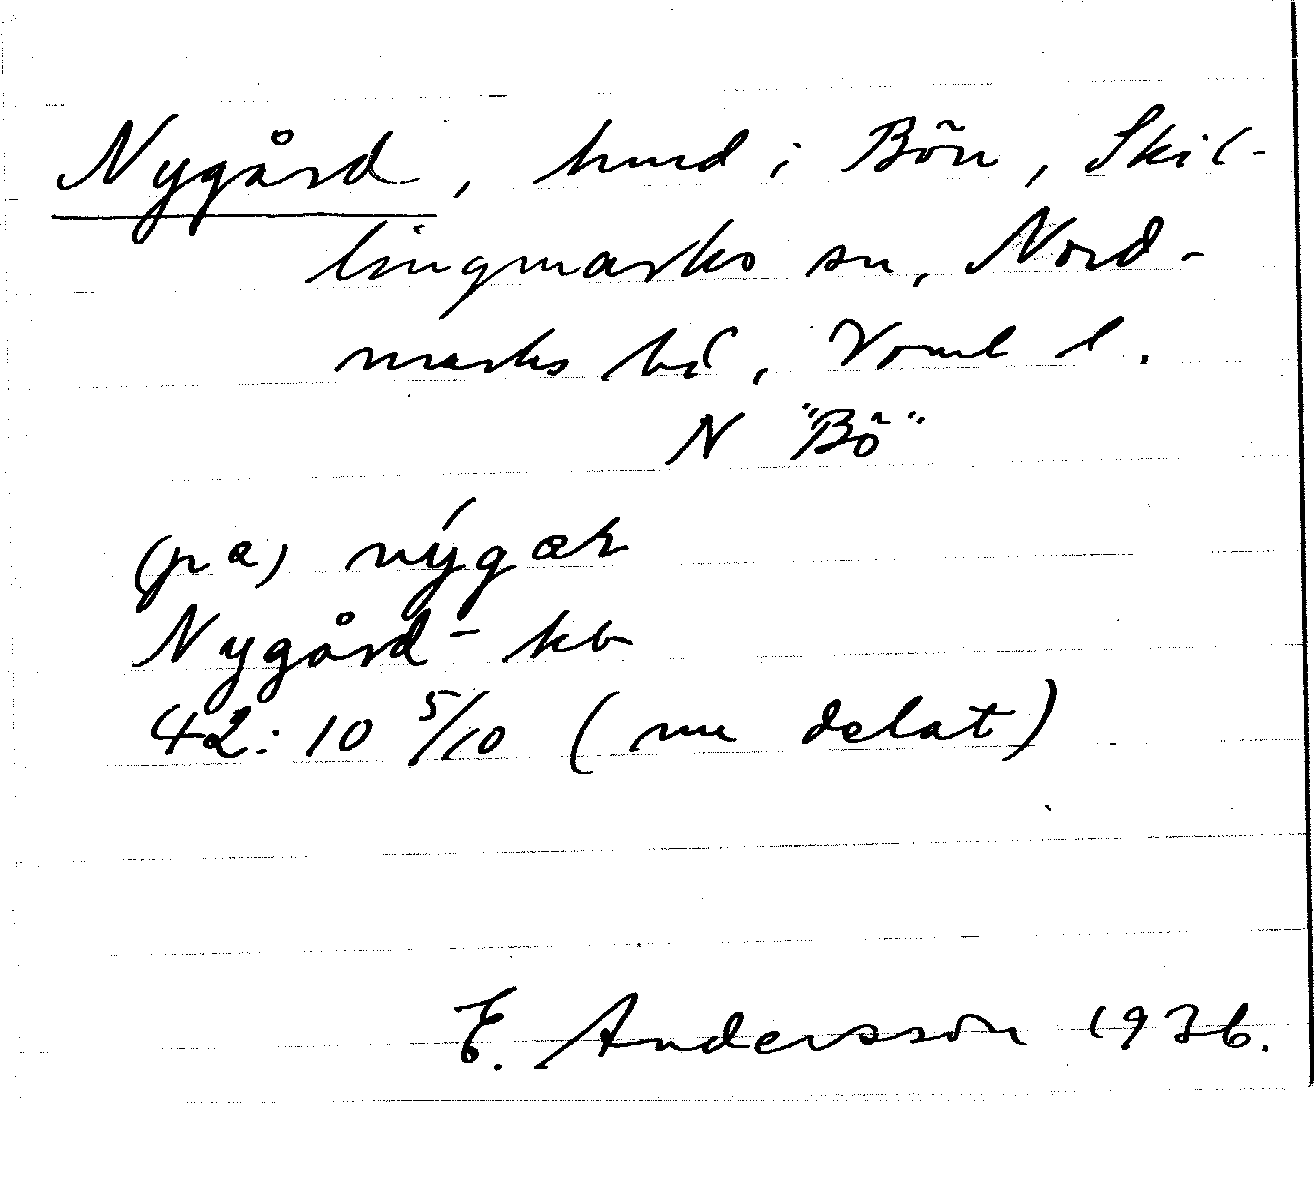 Nygård, hmd i Bön, Skil-
lingmarks sn, Nord-
marks hd, Värml l.
N "Bö"
(pa) nýgaɶ
Nygård - kb
42:10 5/10 (nu delat)
E. Andersson 1936.